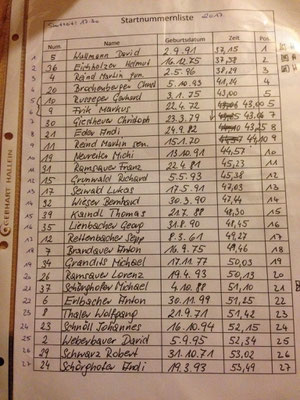 Startnummernliste
Num Name Geburtsdatum Zeit Pos.
1 5 Wallmann David 2.9.91 37,15 1
2 36 Eichholzer Helmut 16.12.75 37,38 2
3 4 Reind Martin jun. 2.5.96 38,29 3
4 20 5.10.93 41,24 4
5 10 Russeger Gerhard 3.1.75 43,00 5
33 Frik Markus 22.4.72 43,00 5
30 Giesheuer Christoph 23.3.79 43,06 6
21 Ecker Andi 24.9.82 43,25 8
11 Reind Martin sen. 15.1.70 44,10 9
19 Neureiter Michi 13.10.91 44,57 10
31 Ramsauer Franz 22.4.81 45,23 11
15 Grünwald Richard 5.5.93 45,38 12
17 Seiwald Lukas 17.5.91 47,03 13
32 Wieser Bernhard 30.3.90 47,44 14
39 Kaindl Thomas 21.7.88 48,30 15
35 Lienbacher Georg 31.8.90 48,45 16
12 Rettenbacher Sepp 8.3.61 49,27 17
7 Brandauer Anton 16.9.75 49,46 18
34 Granditz Michael 17.11.77 50,03 19
26 Ramsauer Lorenz 19.4.93 50,13 20
37 Schörghofer Michael 4.10.88 51,10 21
6 Erlbacher Anton 30.11.99 51,25 22
8 Thaler Wolfgang 21.9.71 51,42 23
23 Schnöll Johannes 16.10.94 52,15 24
2 Weberbauer David 5.9.95 52,34 25
29 Schwarz Robert 31.10.71 53,02 26
24 Schörghofer Andi 19.3.93 53,49 27